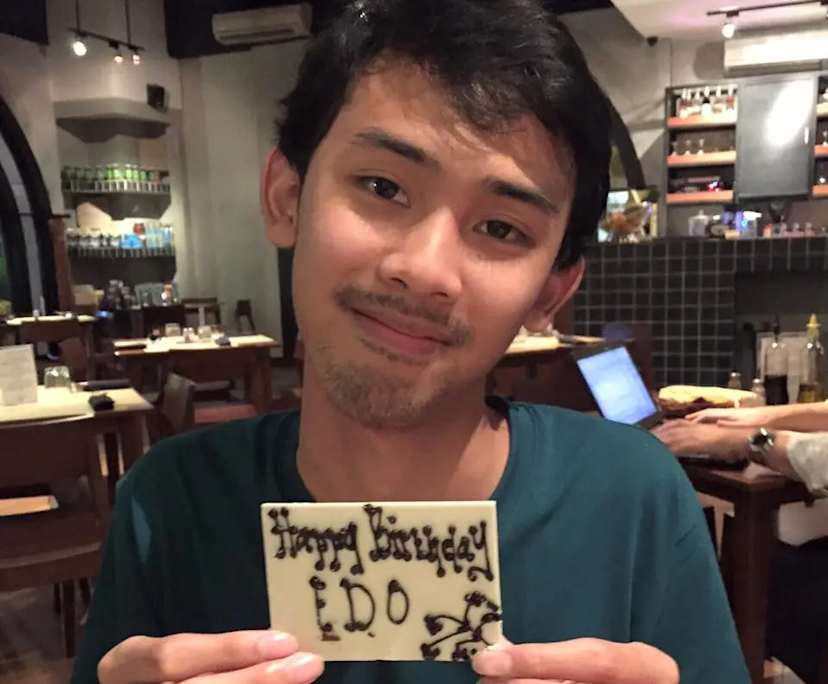 Happy Birthday
EDO